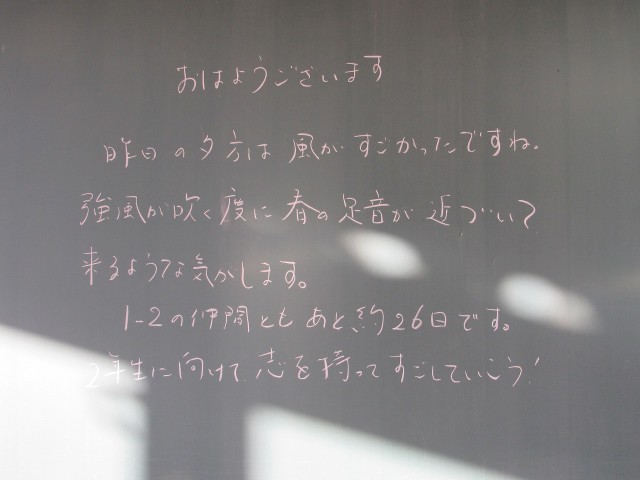 おはようございます
昨日の夕方は風がすごかったですね。
強風が吹く度に春の足音が近づいて
来るような気がします。
1-2の仲間ともあと約26日です。
2年生に向けて志を持ってすごしていこう!